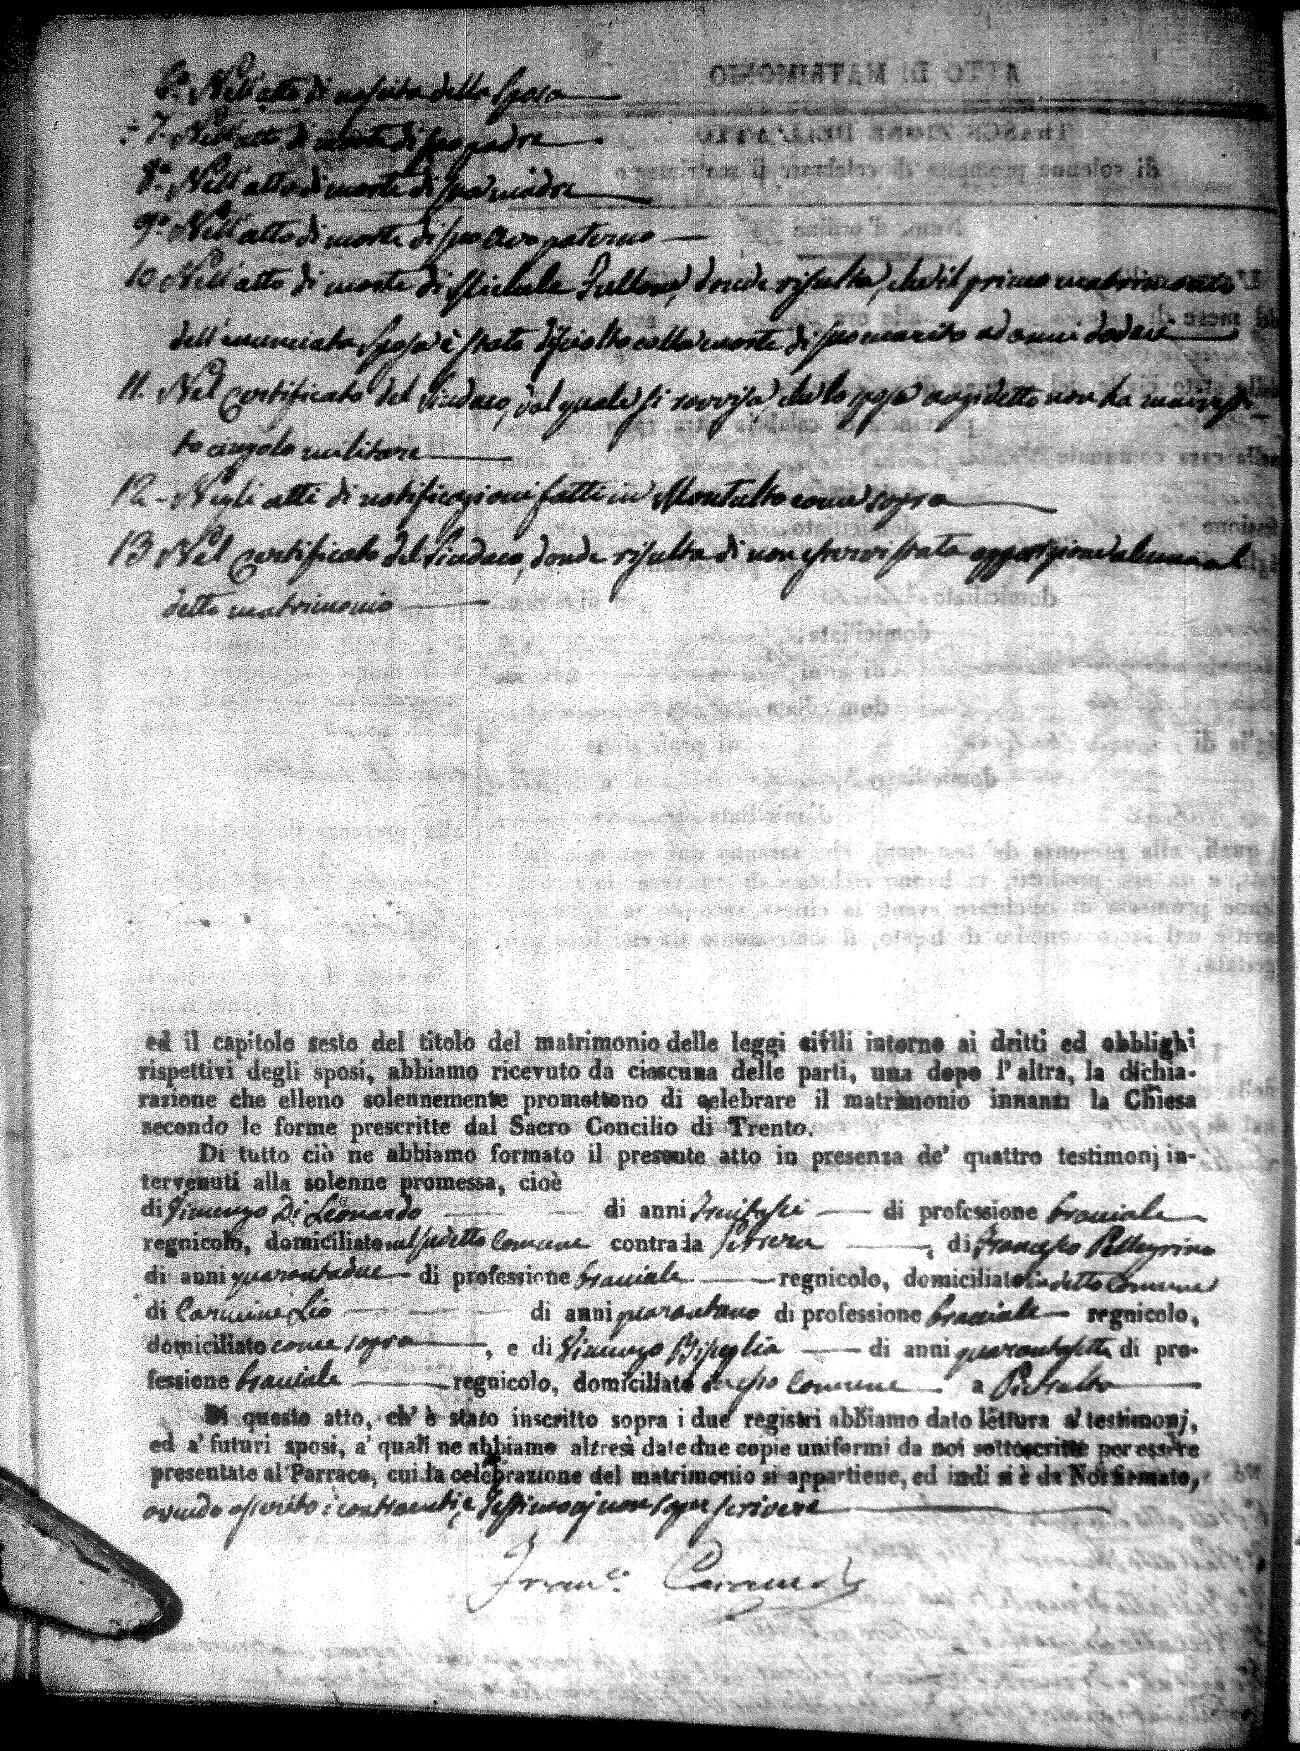 6.° Nell'atto di nascita della sposa
7.° Nell'atto di morte di suo padre
8.° Nell'atto di morte di sua madre
9.° Nell'atto di morte di suo avo paterno
10 Nell'atto di morte di Michele donde risulta, che il primo matrimonio
dell' sposa è stato disciolto colla morte di suo marito ad anni dodeci
11. Nel Certificato del Sindaco, dal quale si che lo sposo anzidetto non ha
to militare
12. Negli atti di notificazioni fatti in Montalto come sopra
13 Nel Certificato del Sindaco, donde risulta di non esservi stata opposizione alcuna al
detto matrimonio
ed il capitolo sesto del titolo del matrimonio delle leggi civili intorno ai dritti ed obblighi
rispettivi degli sposi, abbiamo ricevuto da ciascuna delle parti, una dopo l'altra, la dichia-
razione che elleno solennemente promettono di celebrare il matrimonio innanzi la Chiesa
secondo le forme prescritte dal Sacro Concilio di Trento.
Di tutto ciò ne abbiamo formato il presente atto in presenza de' quattro testimonj in-
tervenuti alla solenne promessa, cioè
di Vincenzo Di Leonardo di anni trentasei di professione bracciale
regnicolo, domiciliato nel sudetto Comune contrada , di Francesco Pellegrino
di anni quarantadue di professione bracciale regnicolo, domiciliato in detto Comune
di Carmine Lio di anni quarantuno di professione bracciale regnicolo,
domiciliato come sopra , e di Vincenzo Biseglia di anni quarantasette di pro-
fessione bracciale regnicolo, domiciliato in esso Comune a Pietralto
Di questo atto, ch' è stato inscritto sopra i due registri abbiamo dato lettura a' testimonj,
ed a' futuri sposi, a' quali ne abbiamo altresì date due copie uniformi da noi sottoscritte per essere
presentate al Parroco, cui la celebrazione del matrimonio si appartiene, ed indi si è da Noi firmato,
avendo asserito i contraenti, e testimonj non saper scrivere
Fran.co